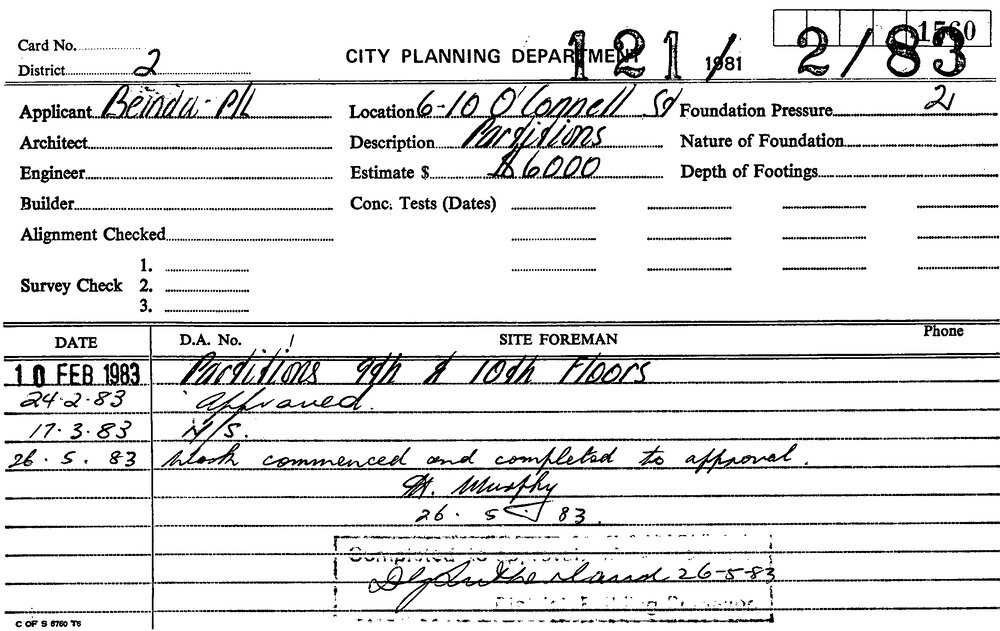 1560
Card No.
CITY PLANNING DEPARTMENT 1981
121/2/83
District 2
Applicant Beinda P/L Location 6-10 O'Connell St Foundation Pressure 2
Architect Description Partitions Nature of Foundation
Engineer Estimate $ $6000 Depth of Footings
Builder Conc. Tests (Dates)
Alignment Checked
Survey Check 1.
2.
3.
DATE D.A. No. / SITE FOREMAN Phone
10 FEB 1983 Partitions 9th & 10th Floors
24.2.83 approved.
17.3.83 N/S.
26.5.83 Work commenced and completed to approval.
Murphy
26.5.83.
Completed to approval.
26-5-83
C OF S 8760 T6